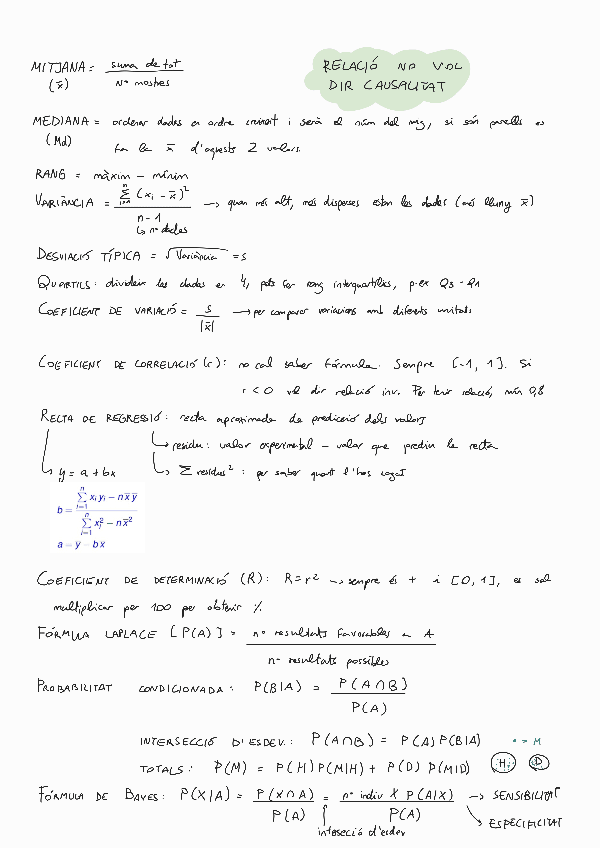 MITJANA = suma de tot / nº mostres
(x̄)
RELACIÓ NO VOL
DIR CAUSALITAT
MEDIANA = ordenar dades en ordre creixent i serà el núm del mig, si són parells es
(Md)
fa la x̄ d'aquests 2 valors.
RANG = màxim – mínim
VARIÀNCIA = ∑ i=1 n (xi - x̄)² / n - 1 → quan més alt, més disperses estan les dades (més lluny x̄)
↳ nº dades
DESVIACIÓ TÍPICA = √Variància = s
QUARTILS: dividir les dades en 4, pots fer rang interquartílic, p.ex Q3 - Q1
COEFICIENT DE VARIACIÓ = s / |x̄| → per comparar variacions amb diferents unitats
COEFICIENT DE CORRELACIÓ (r): no cal saber fórmula. Sempre [-1, 1]. Si
r < 0 vol dir relació inv. Per tenir relació, mín 0,8
RECTA DE REGRESSIÓ: recta aproximada de predicció dels valors
↳ residu: valor experimental – valor que prediu la recta
↳ y = a + bx ↳ ∑ residus² : per saber quant l'has cagat
b = ∑ i=1 n xi yi − n x̄ ȳ / ∑ i=1 n xi² − n x̄²
a = ȳ − b x̄
COEFICIENT DE DETERMINACIÓ (R): R = r² → sempre és + i [0, 1], es sol
multiplicar per 100 per obtenir %
FÓRMULA LAPLACE [P(A)] = nº resultats favorables a A / nº resultats possibles
PROBABILITAT CONDICIONADA: P(B|A) = P(A∩B) / P(A)
INTERSECCIÓ D'ESDEV.: P(A∩B) = P(A) P(B|A) • = M
TOTALS: P(M) = P(H) P(M|H) + P(D) P(M|D) H D
FÓRMULA DE BAYES: P(X|A) = P(X∩A) / P(A) = nº indiv X P(A|X) / P(A) → SENSIBILITAT
↘ ESPECIFICITAT
intersecció d'esdev